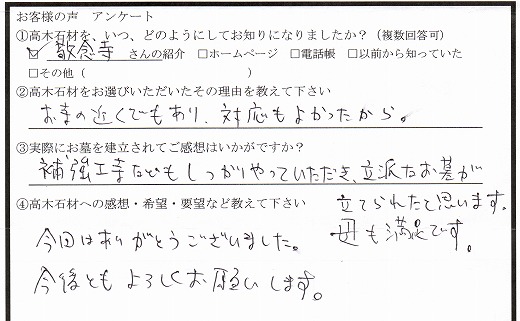 お客様の声　アンケート
①高木石材を、いつ、どのようにしてお知りになりましたか？（複数回答可）
☑敬念寺 さんの紹介　□ホームページ　□電話帳　□以前から知っていた
□その他（　　　　　　　　　　）
②高木石材をお選びいただいたその理由を教えて下さい
お寺の近くでもあり、対応もよかったから。
③実際にお墓を建立されてご感想はいかがですか？
補強工事などもしっかりやっていただき、立派なお墓が
立てられたと思います。
母も満足です。
④高木石材への感想・希望・要望など教えて下さい
今回はありがとうございました。
今後ともよろしくお願いします。